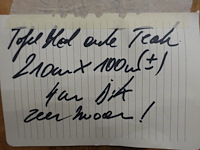 Tafel blad oude Teak
210cm x 100cm (±)
4cm Dik
zeer mooi!